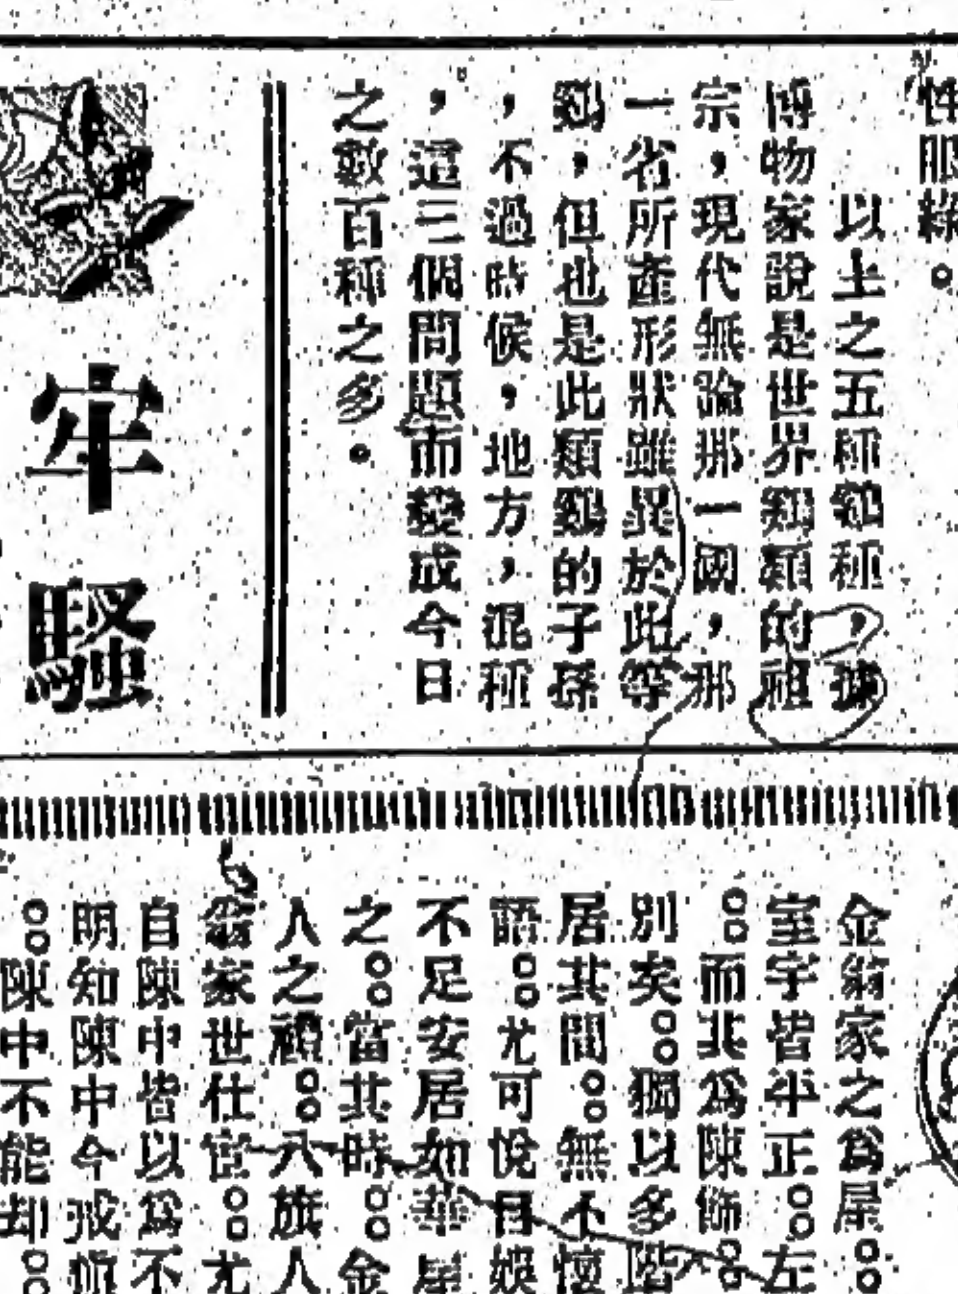 性服綠。
以上之五種鷄種，據
博物家說是世界鷄類的祖
宗，現代無論那一國，那
一省所產形狀雖異於此等
鷄，但也是此類鷄的子孫
，不過時候，地方，混種
，這三個問題而變成今日
之數百種之多。
牢騷
金翁家之爲屋。。
室宇皆平正。。左
。。而其爲陳飾。。
別矣。。獨以多階
居其間。。無不懷
語。。尤可悅目娛
不足安居如華屋
之。。當其時。。金
人之禮。。八旗人
翁家世仕宦。。尤
自陳中皆以爲不
明知陳中今戒
。。陳中不能却。。